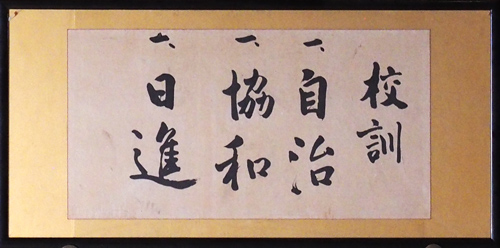 校訓
一、自治
一、協和
一、日進